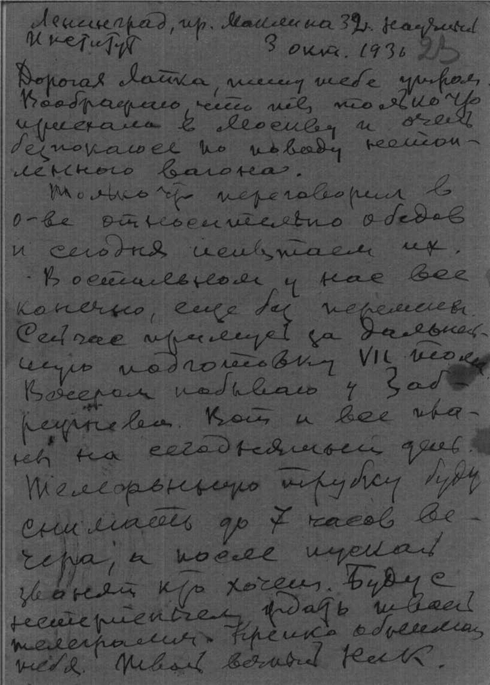 Ленинград, пр. Маклина 32. Научный
Институт 3 окт. 1931 23
Дорогая Лапка, пишу тебе утром.
Воображаю, что ты только что
приехала в Москву и очень
безпокоюсь по поводу нетоп-
ленного вагона.
Только что переговорил в
о-ве относительно обедов
и сегодня испытаем их.
В остальном у нас все
конечно, еще без перемены.
Сейчас за дальней-
шую подготовку VII тома.
Вечером побываю у Заб-
Вот и все пла-
ны на сегодняшний день.
Телефонную трубку буду
снимать до 7 часов ве-
чера, а после пускай
звонят кто хочет. Буду с
нетерпением ждать твоей
телеграммы. Крепко обнимаю
тебя. Твой вечный